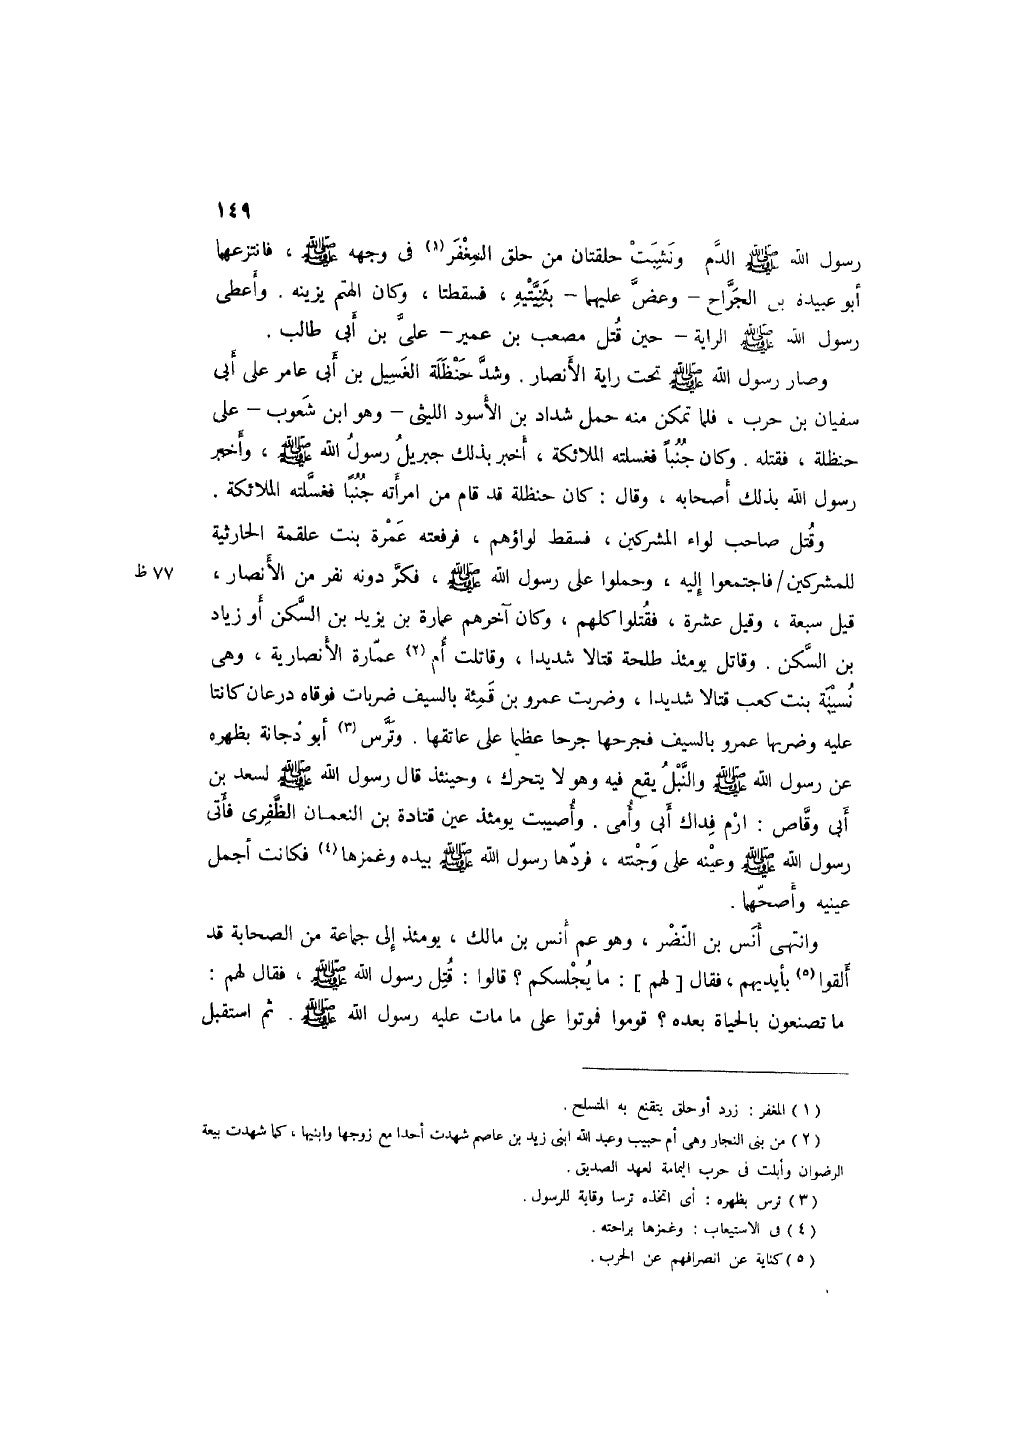 ١٤٩
رسول الله ﷺ الدَّم ونَشِبَتْ حلقتان من حلق المِغْفَر(١) فى وجهه ﷺ ، فانتزعها
أبو عبيدة بن الجَرَّاح – وعضَّ عليهما – بثَنِيَّتيْهِ ، فسقطتا ، وكان الهتم يزينه . وأَعطى
رسول الله ﷺ الراية – حين قُتل مصعب بن عمير – علىَّ بن أَبى طالب .
وصار رسول الله ﷺ تحت راية الأَنصار . وشدَّ حَنْظَلَة الغَسِيل بن أَبى عامر على أَبى
سفيان بن حرب ، فلما تمكن منه حمل شداد بن الأَسود الليثى – وهو ابن شَعوب – على
حنظلة ، فقتله . وكان جُنُباً فغسلته الملائكة ، أَخبر بذلك جبريلُ رسولُ الله ﷺ ، وأَخبر
رسول الله بذلك أَصحابه ، وقال : كان حنظلة قد قام من امرأَته جُنُبًا فغسَّلته الملائكة .
وقُتل صاحب لواء المشركين ، فسقط لواؤهم ، فرفعته عَمْرة بنت علقمة الحارثية
للمشركين/ فاجتمعوا إليه ، وحملوا على رسول الله ﷺ ، فكرَّ دونه نفر من الأَنصار ،
٧٧ ظ
قيل سبعة ، وقيل عشرة ، فقُتلوا كلهم ، وكان آخرهم عمارة بن يزيد بن السَّكن أَو زياد
بن السَّكن . وقاتل يومئذ طلحة قتالا شديدا ، وقاتلت أُم(٢) عمّارة الأَنصارية ، وهى
نُسيْبَة بنت كعب قتالا شديدا ، وضربت عمرو بن قَمِئة بالسيف ضربات فوقاه درعان كانتا
عليه وضربها عمرو بالسيف فجرحها جرحا عظيما على عاتقها . وتَرَّس(٣) أبو دُجانة بظهره
عن رسول الله ﷺ والنَّبْلُ يقع فيه وهو لا يتحرك ، وحينئذ قال رسول الله ﷺ لسعد بن
أَبى وقَّاص : ارْم فِداك أَبى وأُمى . وأُصيبت يومئذ عين قتادة بن النعمان الظَّفِرى فأَتى
رسول الله ﷺ وعيْنه على وَجْنته ، فردّها رسول الله ﷺ بيده وغمزها(٤) فكانت أجمل
عينيه وأَصحّها .
وانتهى أَنَس بن النّضْر ، وهو عم أنس بن مالك ، يومئذ إلى جماعة من الصحابة قد
أَلقوا(٥) بأيديهم ، فقال [ لهم ] : ما يُجْلسكم ؟ قالوا : قُتِل رسول الله ﷺ ، فقال لهم :
ما تصنعون بالحياة بعده ؟ قوموا فموتوا على ما مات عليه رسول الله ﷺ . ثم استقبل
(١) المغفر : زرد أو حلق يتقنع به المتسلح .
(٢) من بنى النجار وهى أم حبيب وعبد الله ابنى زيد بن عاصم شهدت أحدا مع زوجها وابنيها ، كما شهدت بيعة
الرضوان وأبلت فى حرب اليمامة لعهد الصديق .
(٣) ترس بظهره : أى اتخذه ترسا وقاية للرسول .
(٤) فى الاستيعاب : وغمزها براحته .
(٥) كناية عن انصرافهم عن الحرب .